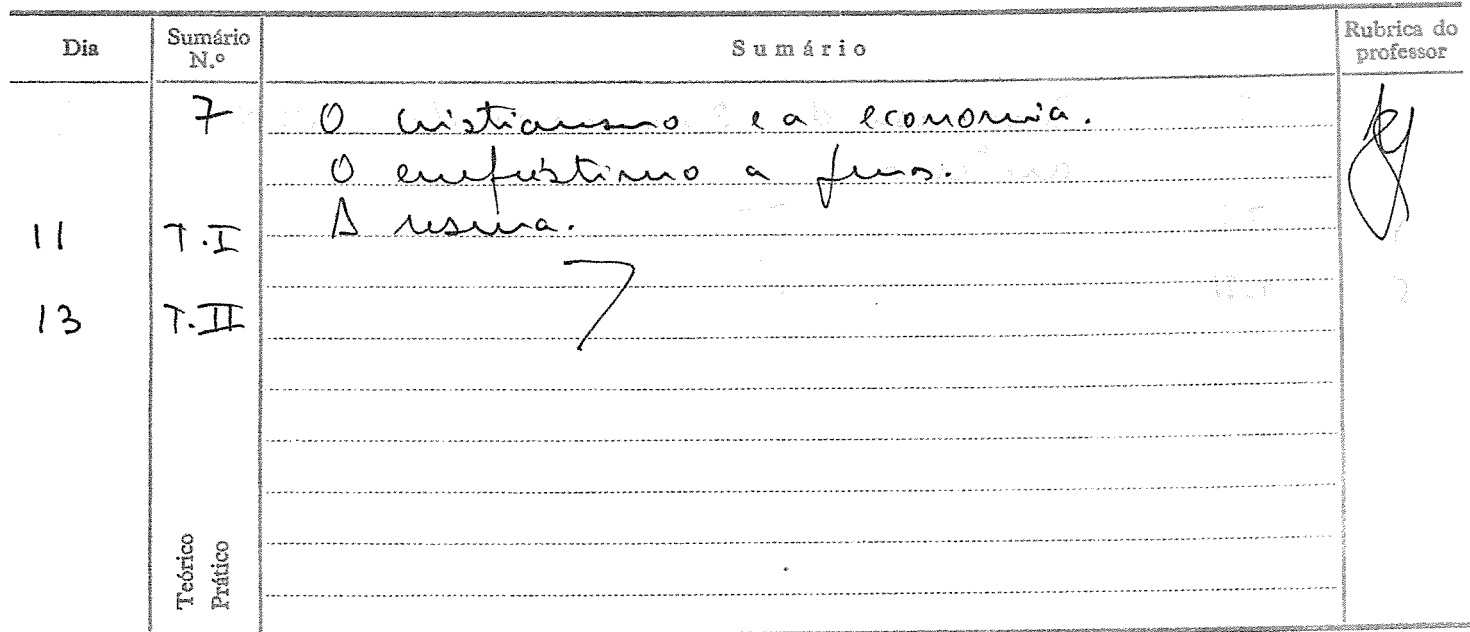 Dia Sumário N.º Sumário Rubrica do professor
7 O cristianismo e a economia.
O empréstimo a juros.
11 T.I A usura.
13 T.II
Teórico
Prático